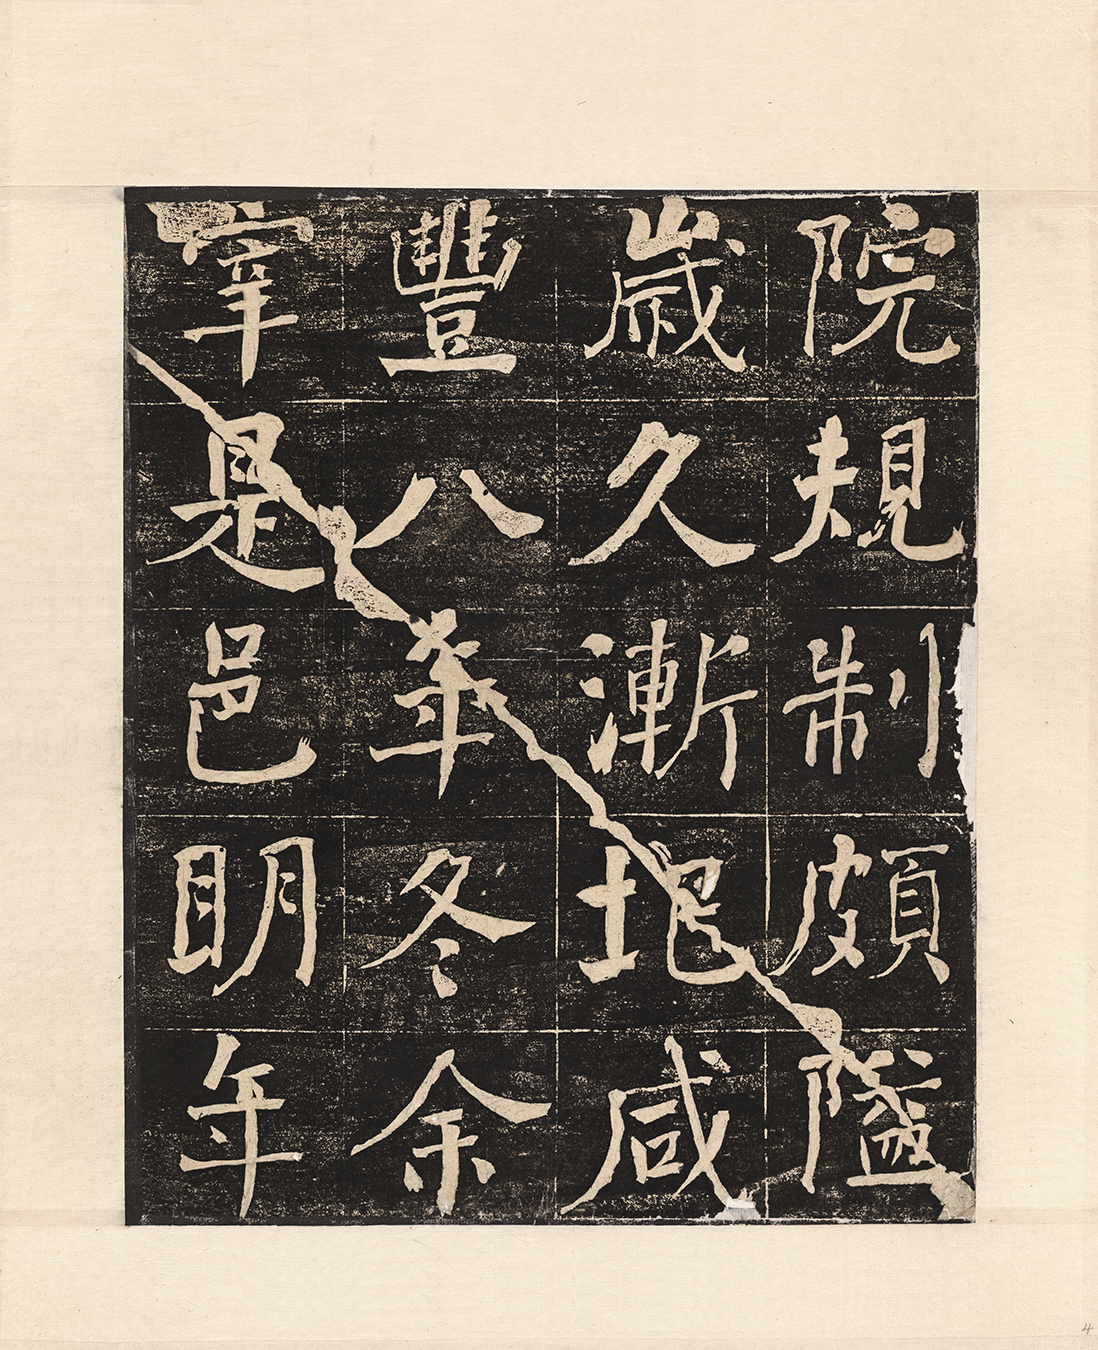 院規制頗隘
歲久漸圮咸
豐八年冬余
宰是邑明年
4